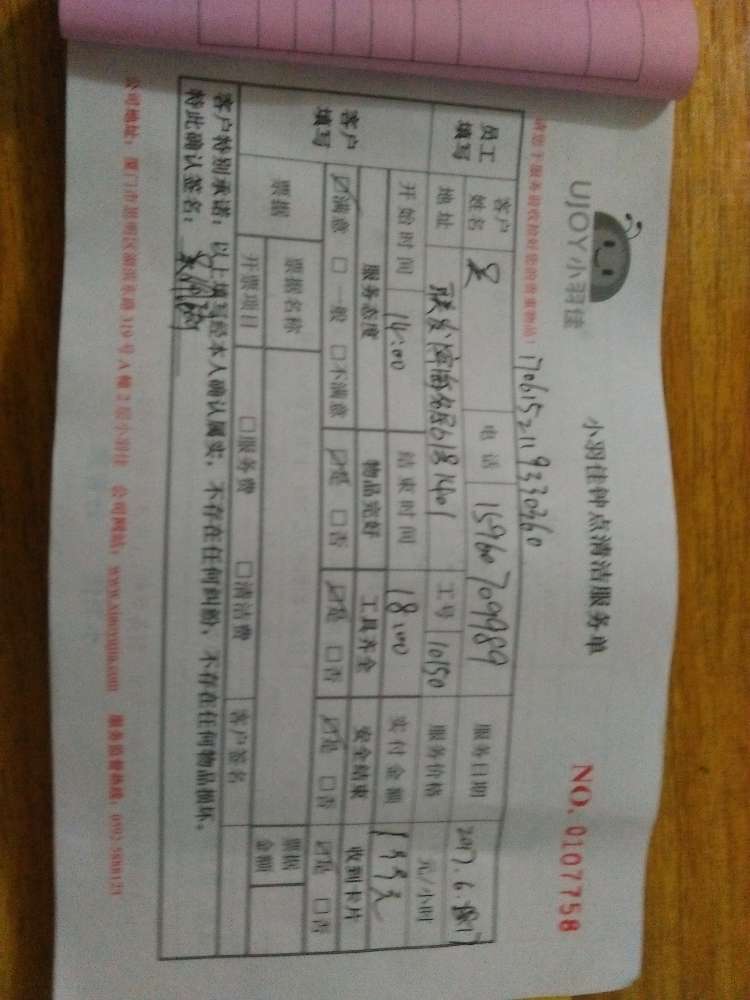 UJOY小羽佳
小羽佳钟点清洁服务单
NO. 0107758
1706152119330360
员工填写 客户姓名 吴 电话 15960709989 服务日期 2017.6.17
地址 618 1401 工号 10150 服务价格 元/小时
开始时间 14:00 结束时间 18:00 实付金额
客户填写 服务态度 物品完好 工具齐全 安全结束 收到卡片
☑满意 □一般 □不满意 ☑是 □否 ☑是 □否 ☑是 □否 ☑是 □否
票据 票据名称 票据金额
开票项目 □服务费 □清洁费 客户签名
客户特别承诺：以上填写经本人确认属实，不存在任何纠纷，不存在任何物品损坏。
特此确认签名：
公司地址：厦门市思明区 319号A幢2层小羽佳 公司网站：www.xiaoyujia.com 服务监督热线：0592-5888123